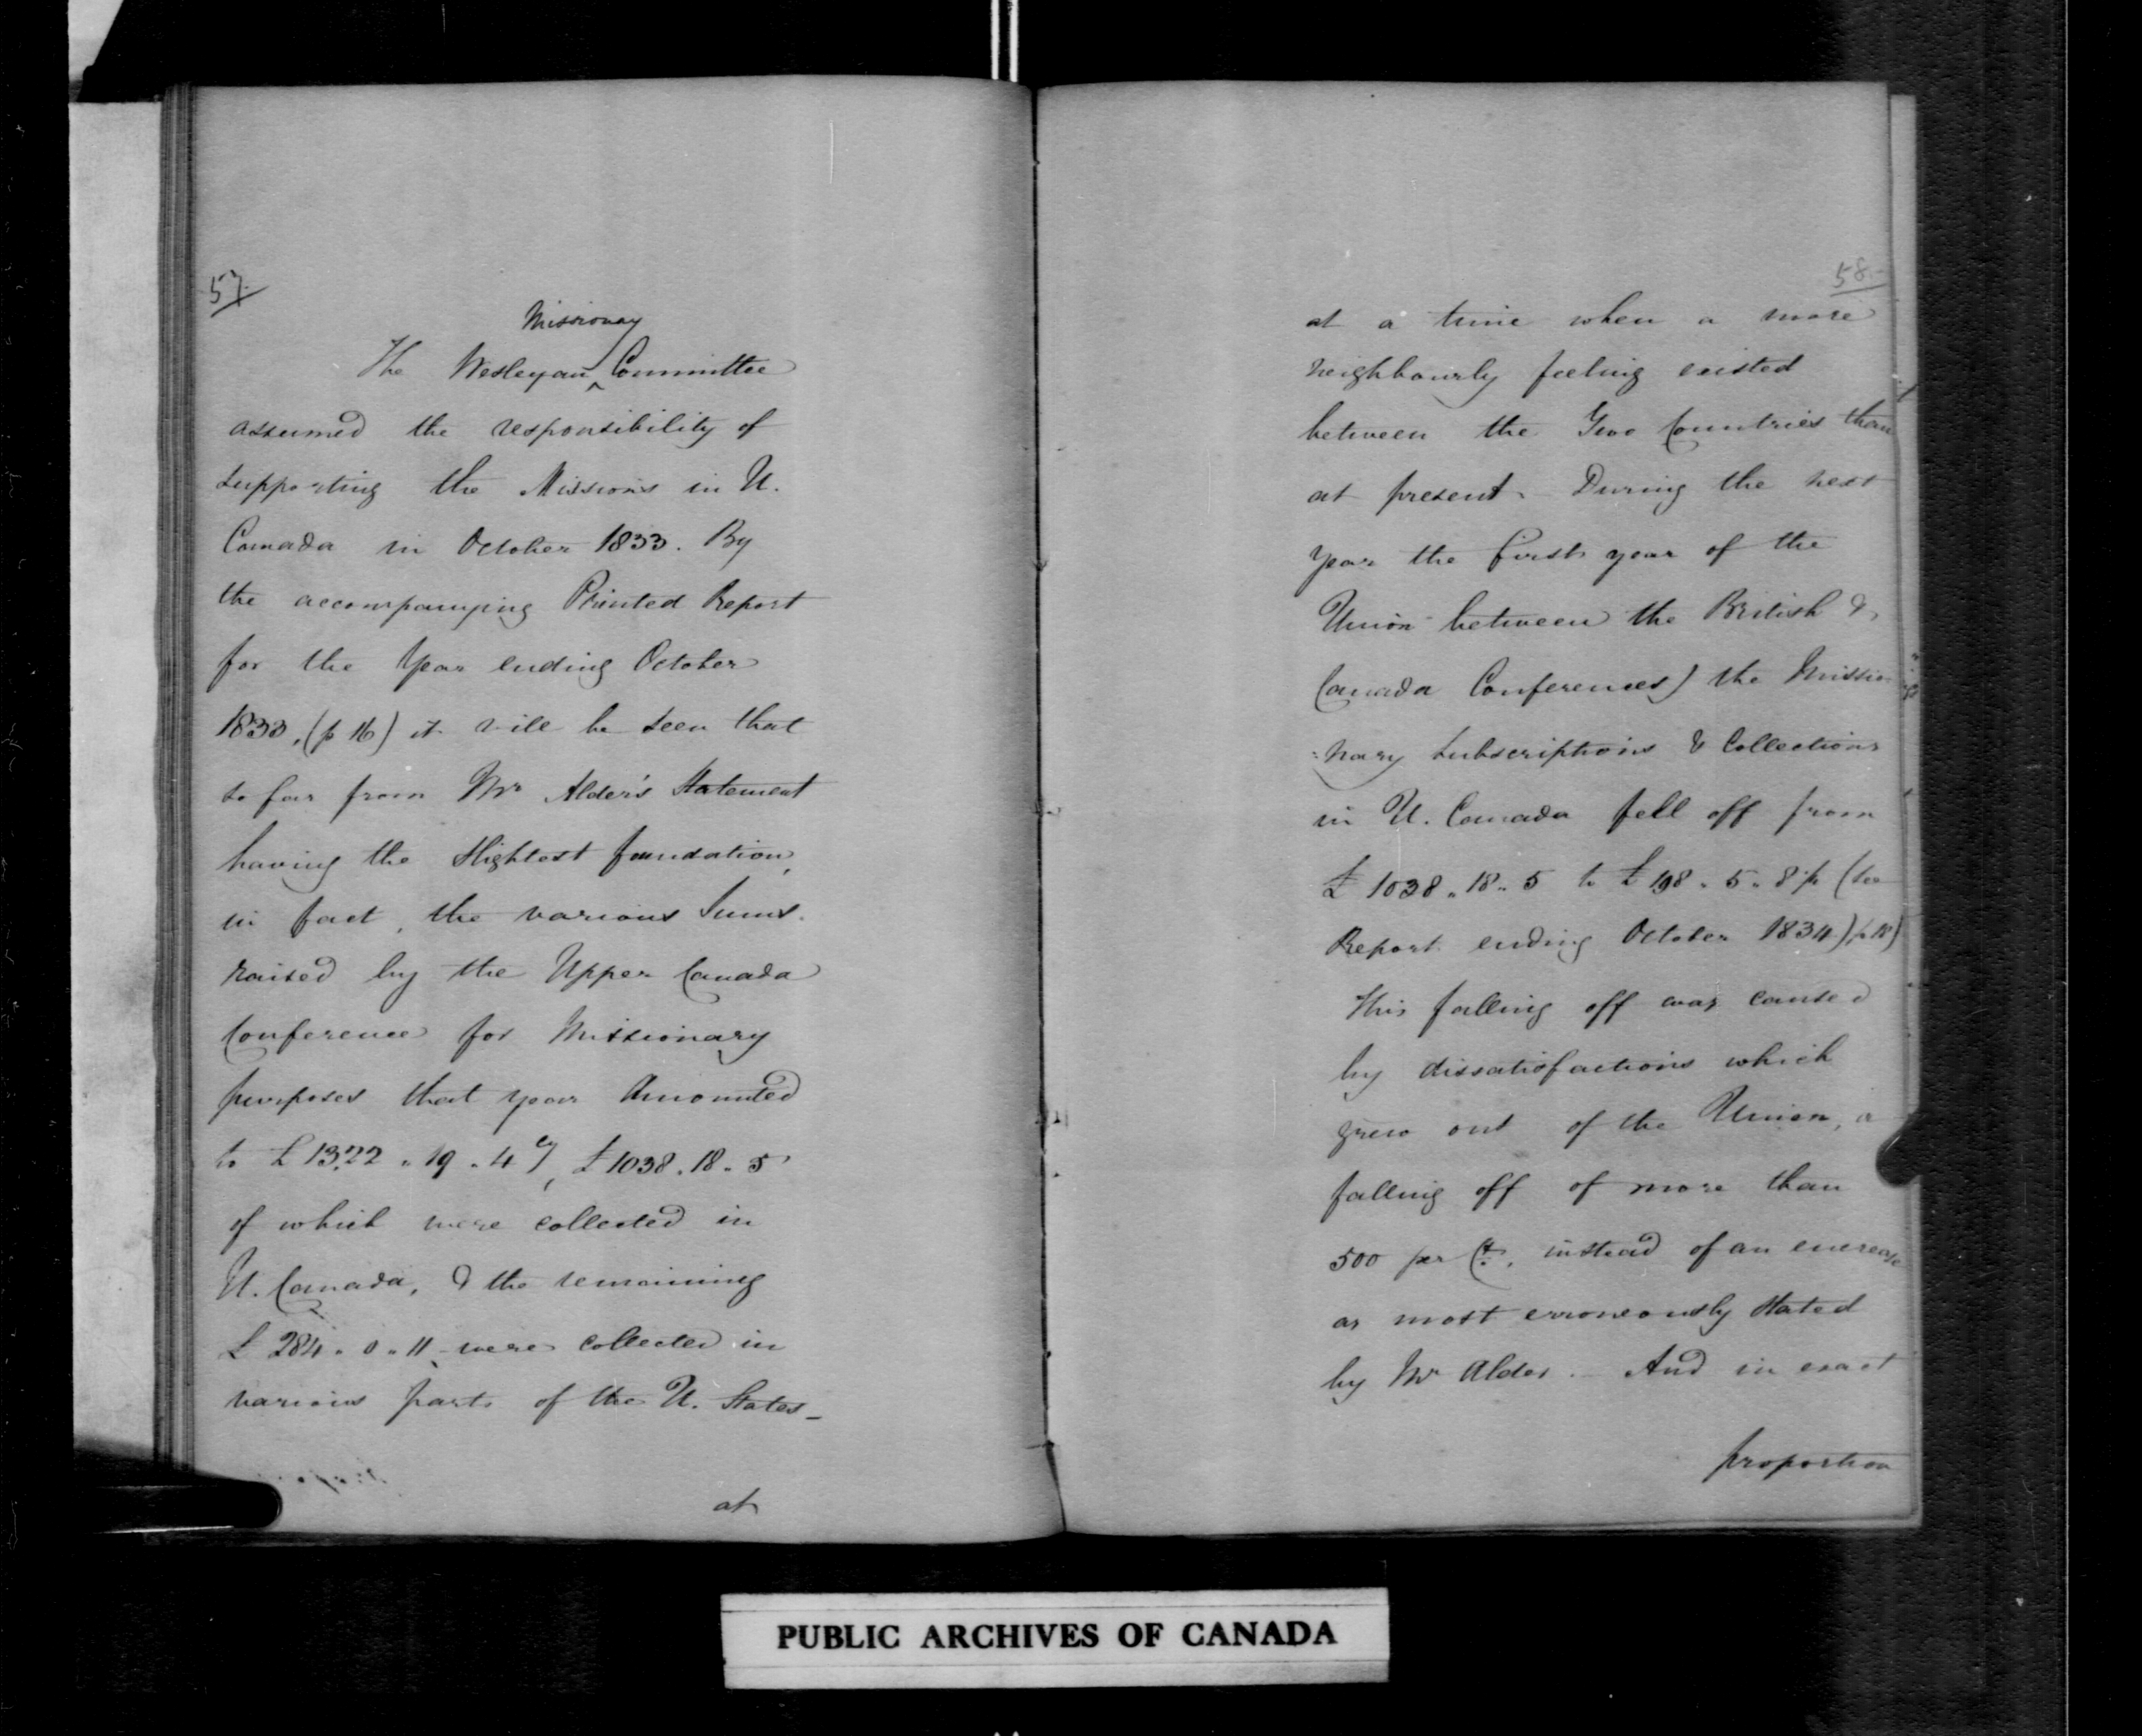 57.
Missionary
The Wesleyan ^ Committee
assumed the responsibility of
supporting the Missions in U.
Canada in October 1833. By
the accompanying Printed Report
for the Year ending October
1833, (p 16) it will be seen that
so far from Mr Alder's Statement
having the slightest foundation,
in fact, the various sums
raised by the Upper Canada
Conference for Missionary
purposes that year Amounted
to £1322 " 19 " 4 Cy, £1038 " 18 " 5
of which were collected in
U. Canada, & the remaining
£ 284 " 0 " 11 were collected in
various parts of the U. States –
at
58.
at a time when a more
neighbourly feeling existed
between the Two Countries than
at present. During the next
year the first year of the
Union between the British &
Canada Conferences) the Missio
:nary Subscriptions & Collections
in U. Canada fell off from
£ 1038 " 18 " 5 to £ 198 " 5 " 8 (see
Report ending October 1834) p 18)
This falling off was caused
by dissatisfactions which
grew out of the Union, a
falling off of more than
500 per Ct, instead of an encrease
as most erroneously stated
by Mr Alder. – And in exact
proportion
PUBLIC ARCHIVES OF CANADA